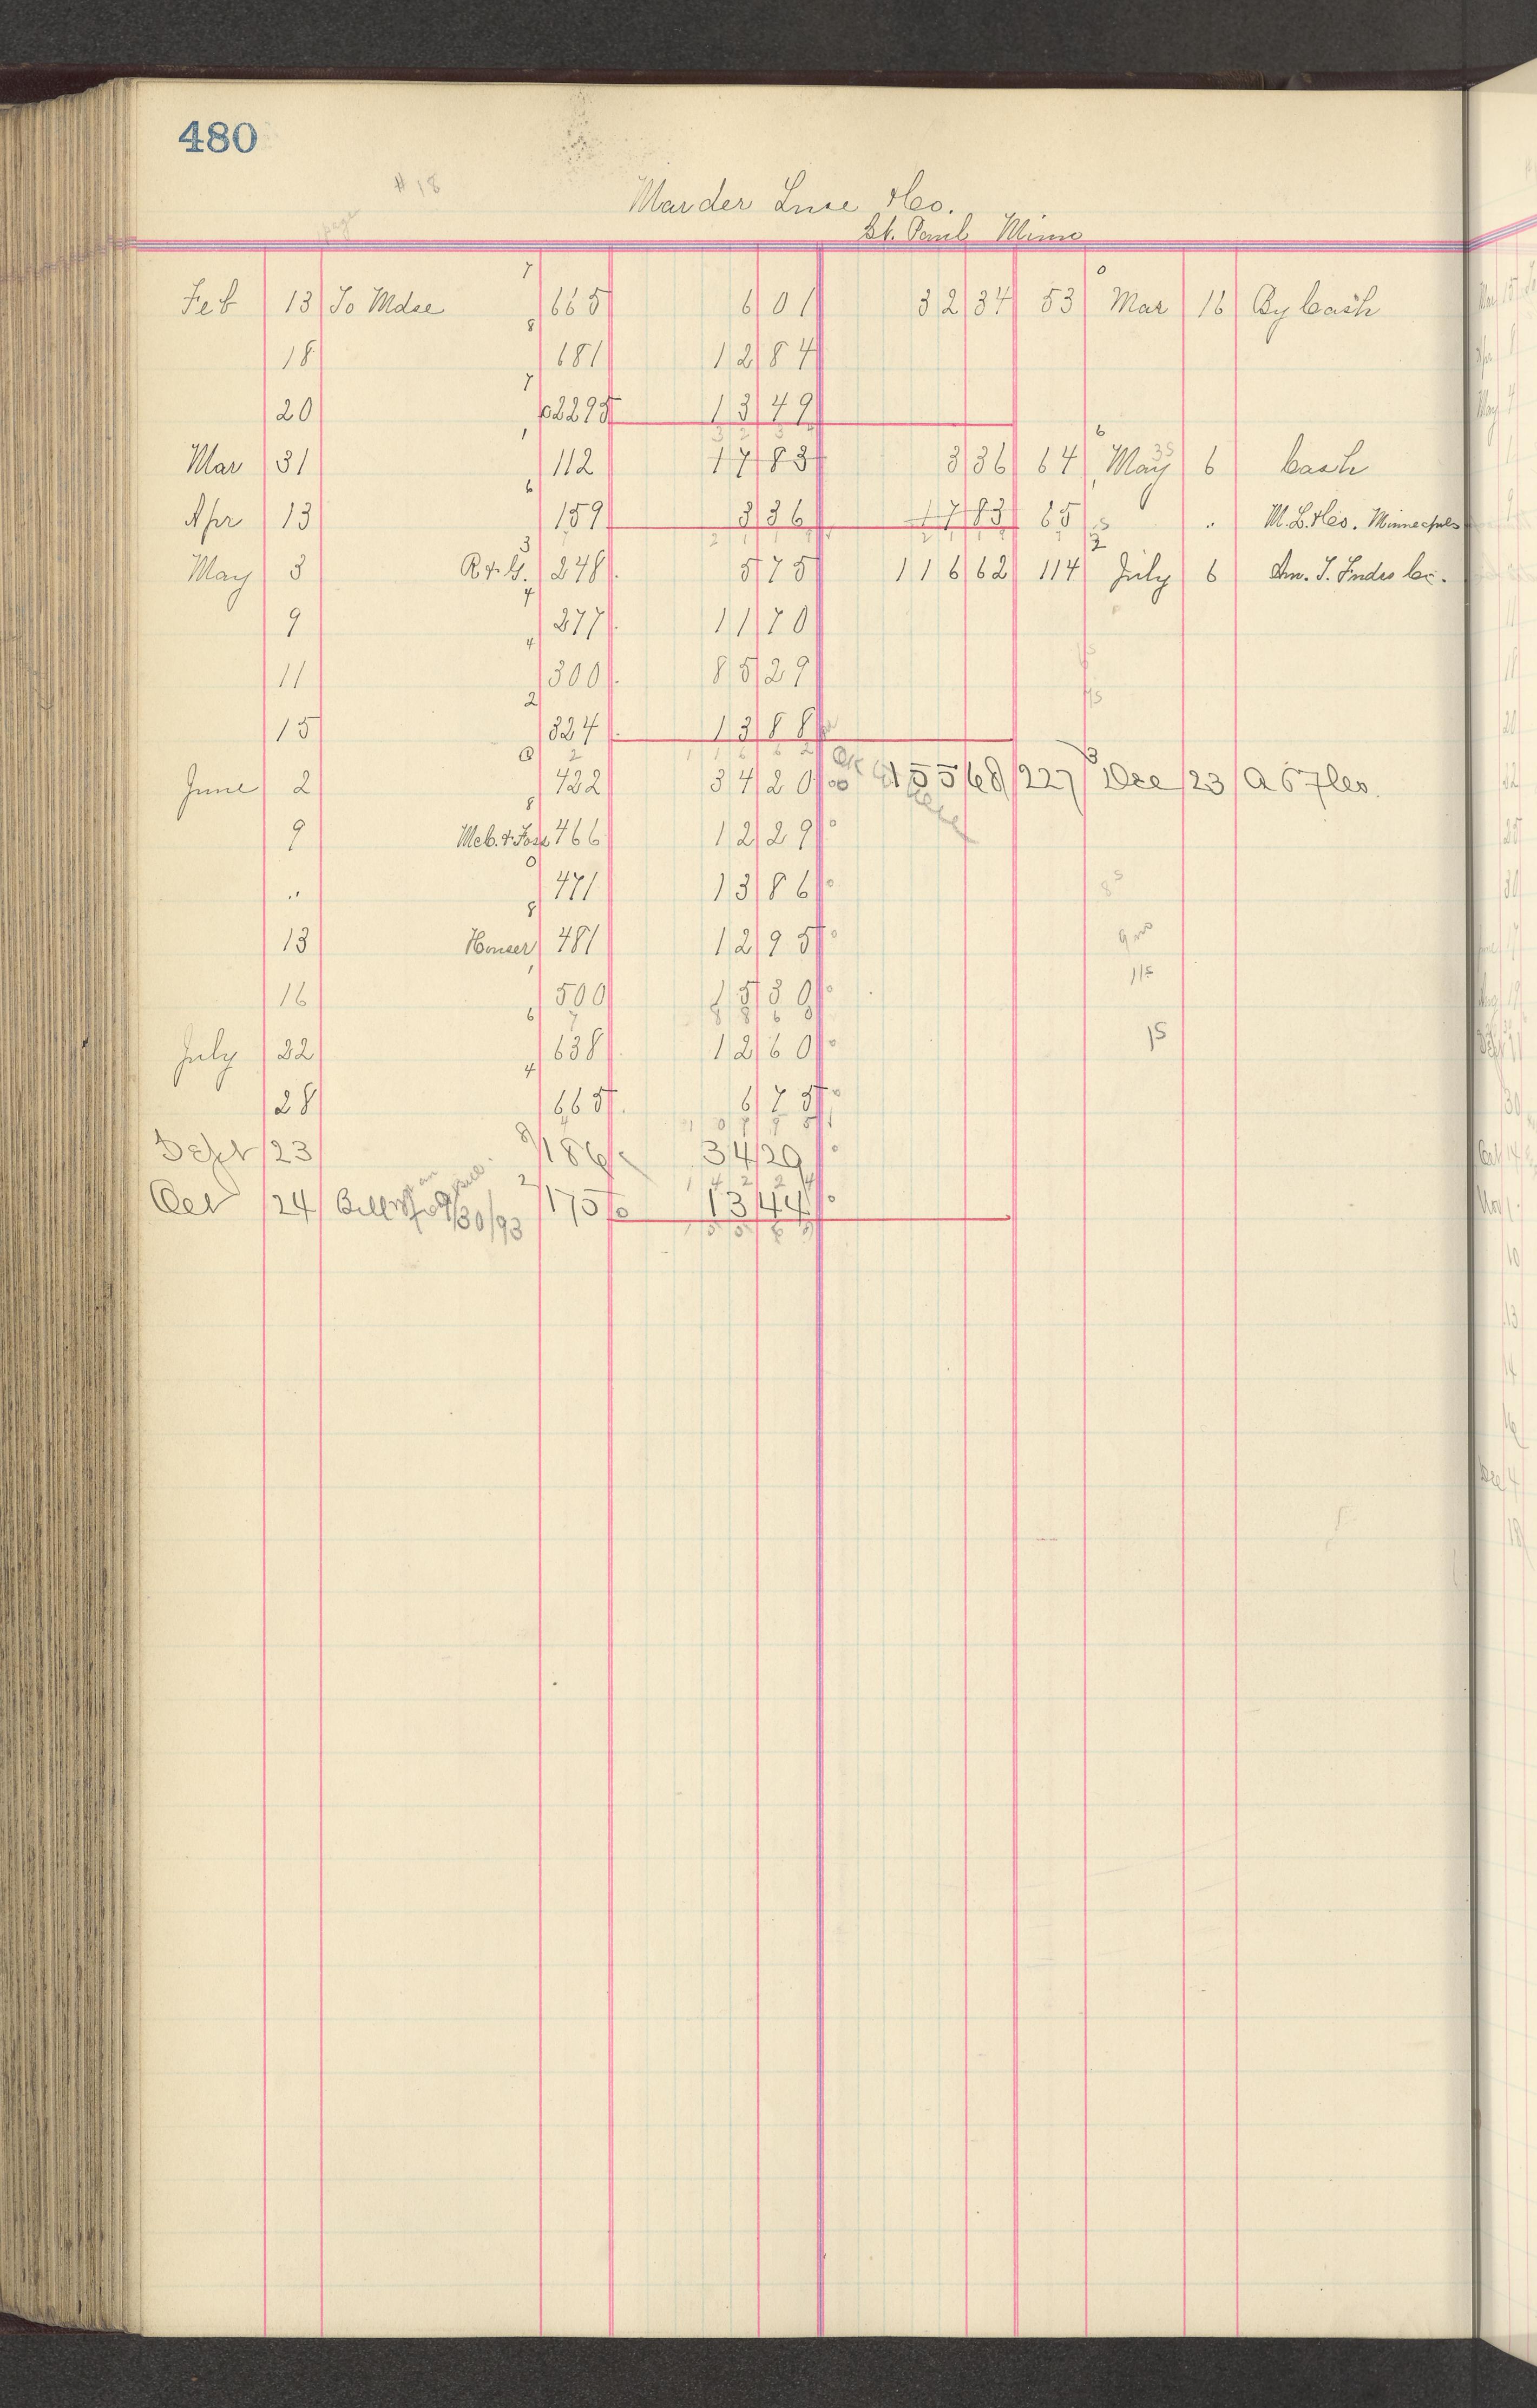 480
# 18
Marder Luse & Co.
St. Paul Minn
7
Feb 13 To Mdse 665 6 01 32 34 53 Mar 16 By Cash
8
18 681 12 84
7
20 2295 13 49
1 6
Mar 31 112 17 83 3 36 64 May 6 Cash
6
Apr 13 159 3 36 17 83 65 " M. L. & Co. Minneapolis
3 2
May 3 R. & G. 248 5 75 116 62 114 July 6 Am. T. Fndrs Co.
7
9 277 11 70
4
11 300 85 29
2
15 324 13 88
0 3
June 2 422 34 20 155 68 227 Dec 23 A S F Co.
8
9 Web. & Foss 466 12 29
0
" 471 13 86
8
13 Houser 481 12 95
1
16 500 15 30
6
15
July 22 638 12 60
4
28 665 6 75
8
Sept 23 186 34 29
2
Oct 24 9/30/93 175 13 44